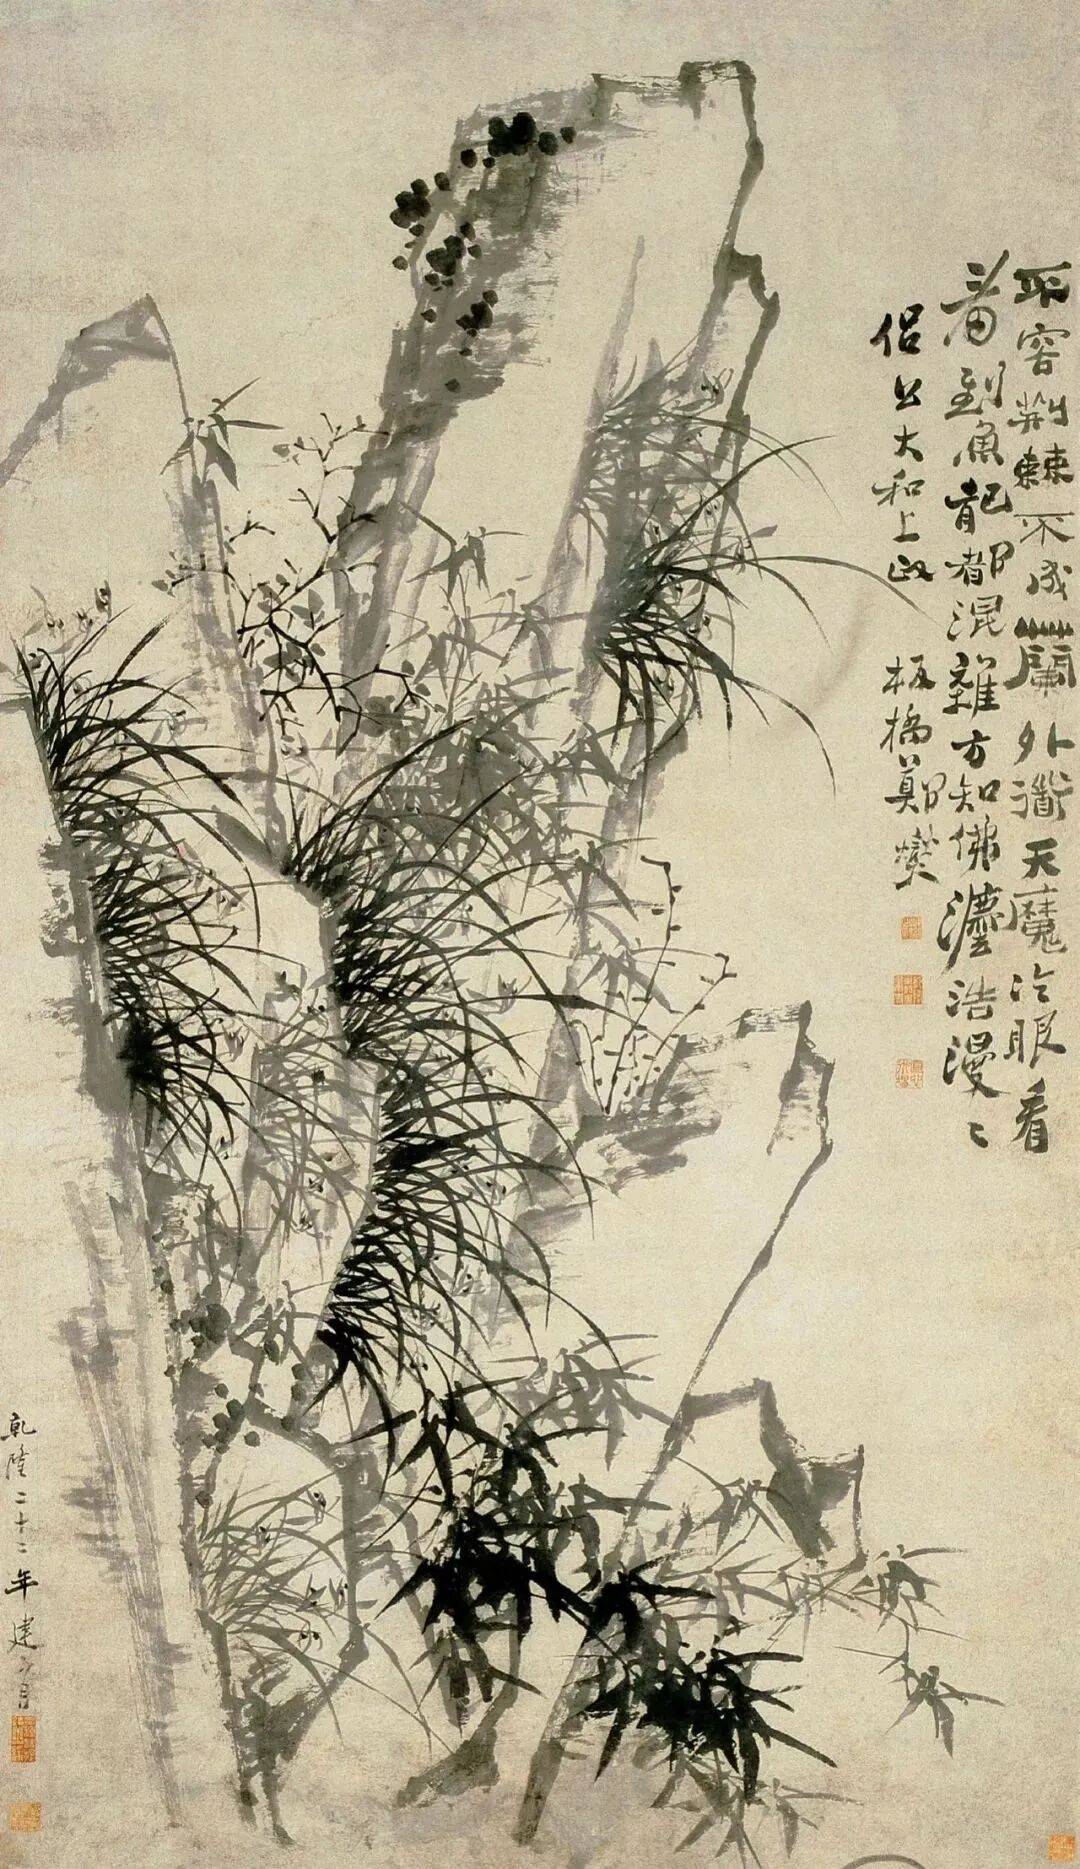 不容荆棘不成蘭外道天魔冷眼看
看到魚龍都混雜方知佛法浩漫〻
侣公大和上政 板橋鄭燮
乾隆二十二年建子月